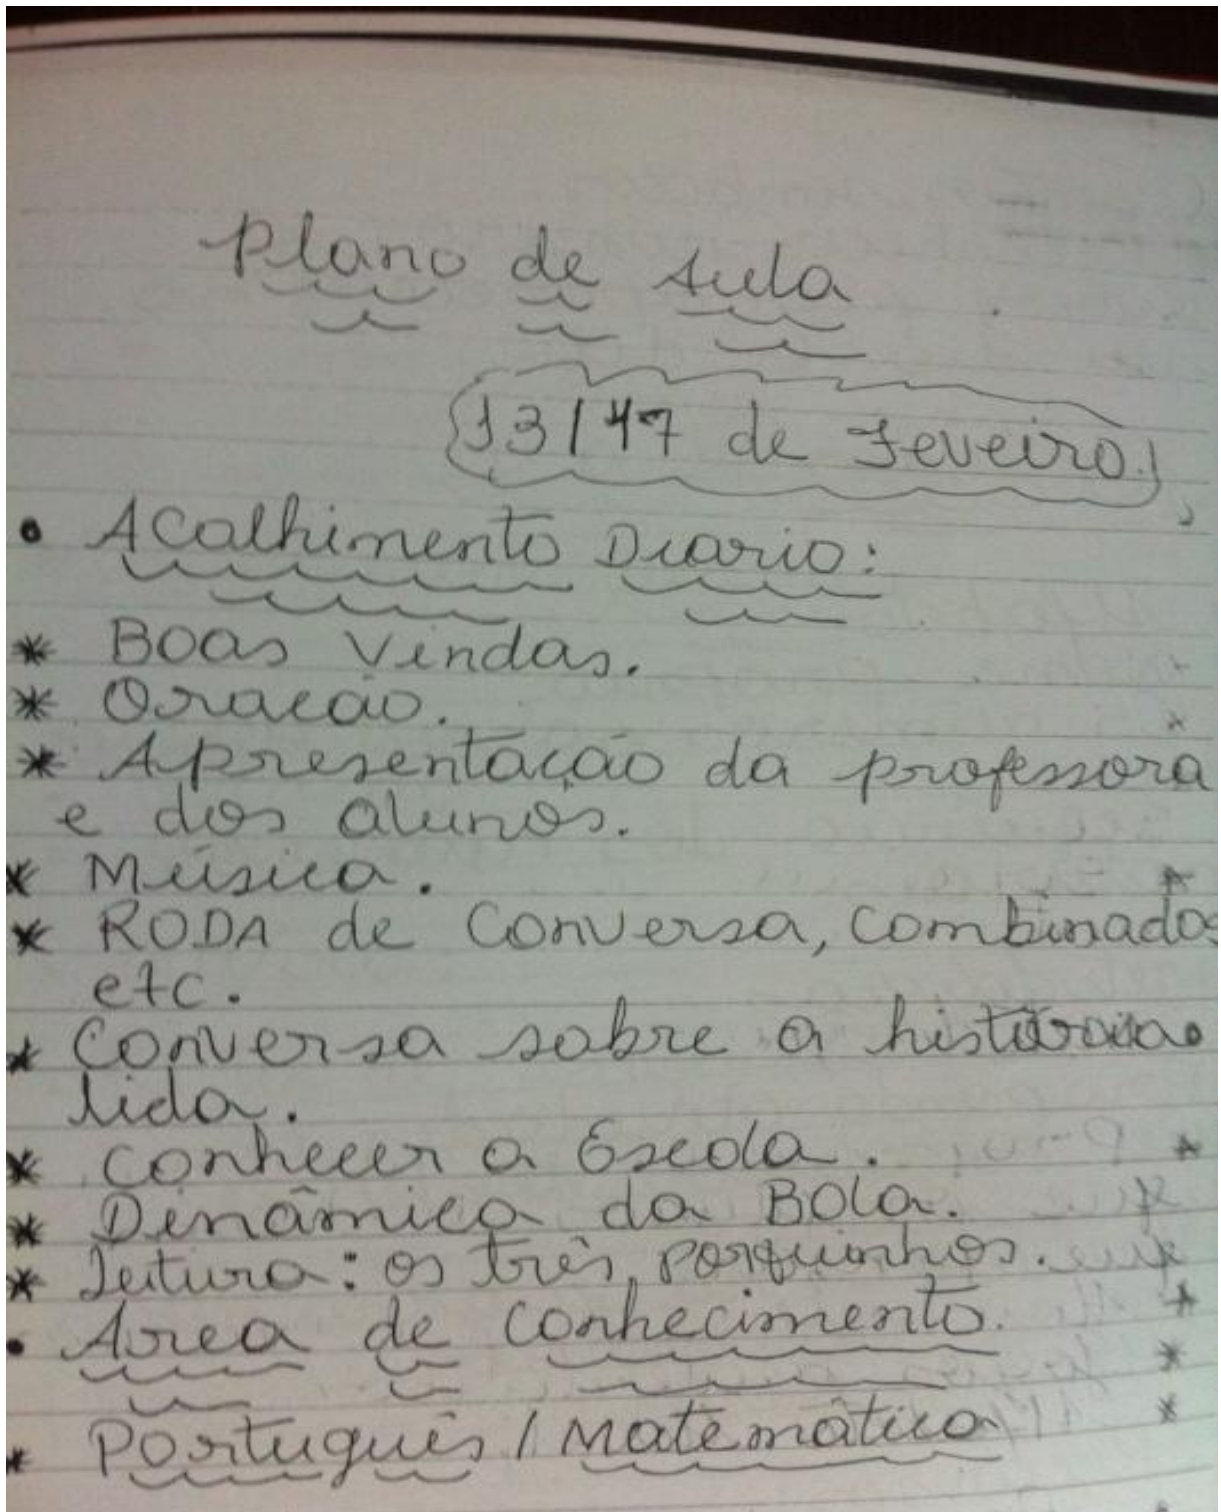 Plano de Aula
13/17 de Feveiro.
• Acolhimento Diario:
* Boas Vindas.
* Oracão.
* Apresentação da professora
e dos alunos.
* Música.
* RODA de Conversa, combinados
etc.
* Conversa sobre a história
lida.
* Conhecer a Escola.
* Dinâmica da Bola.
* Leitura: os três porquinhos.
• Área de Conhecimento.
* Português / Matemática